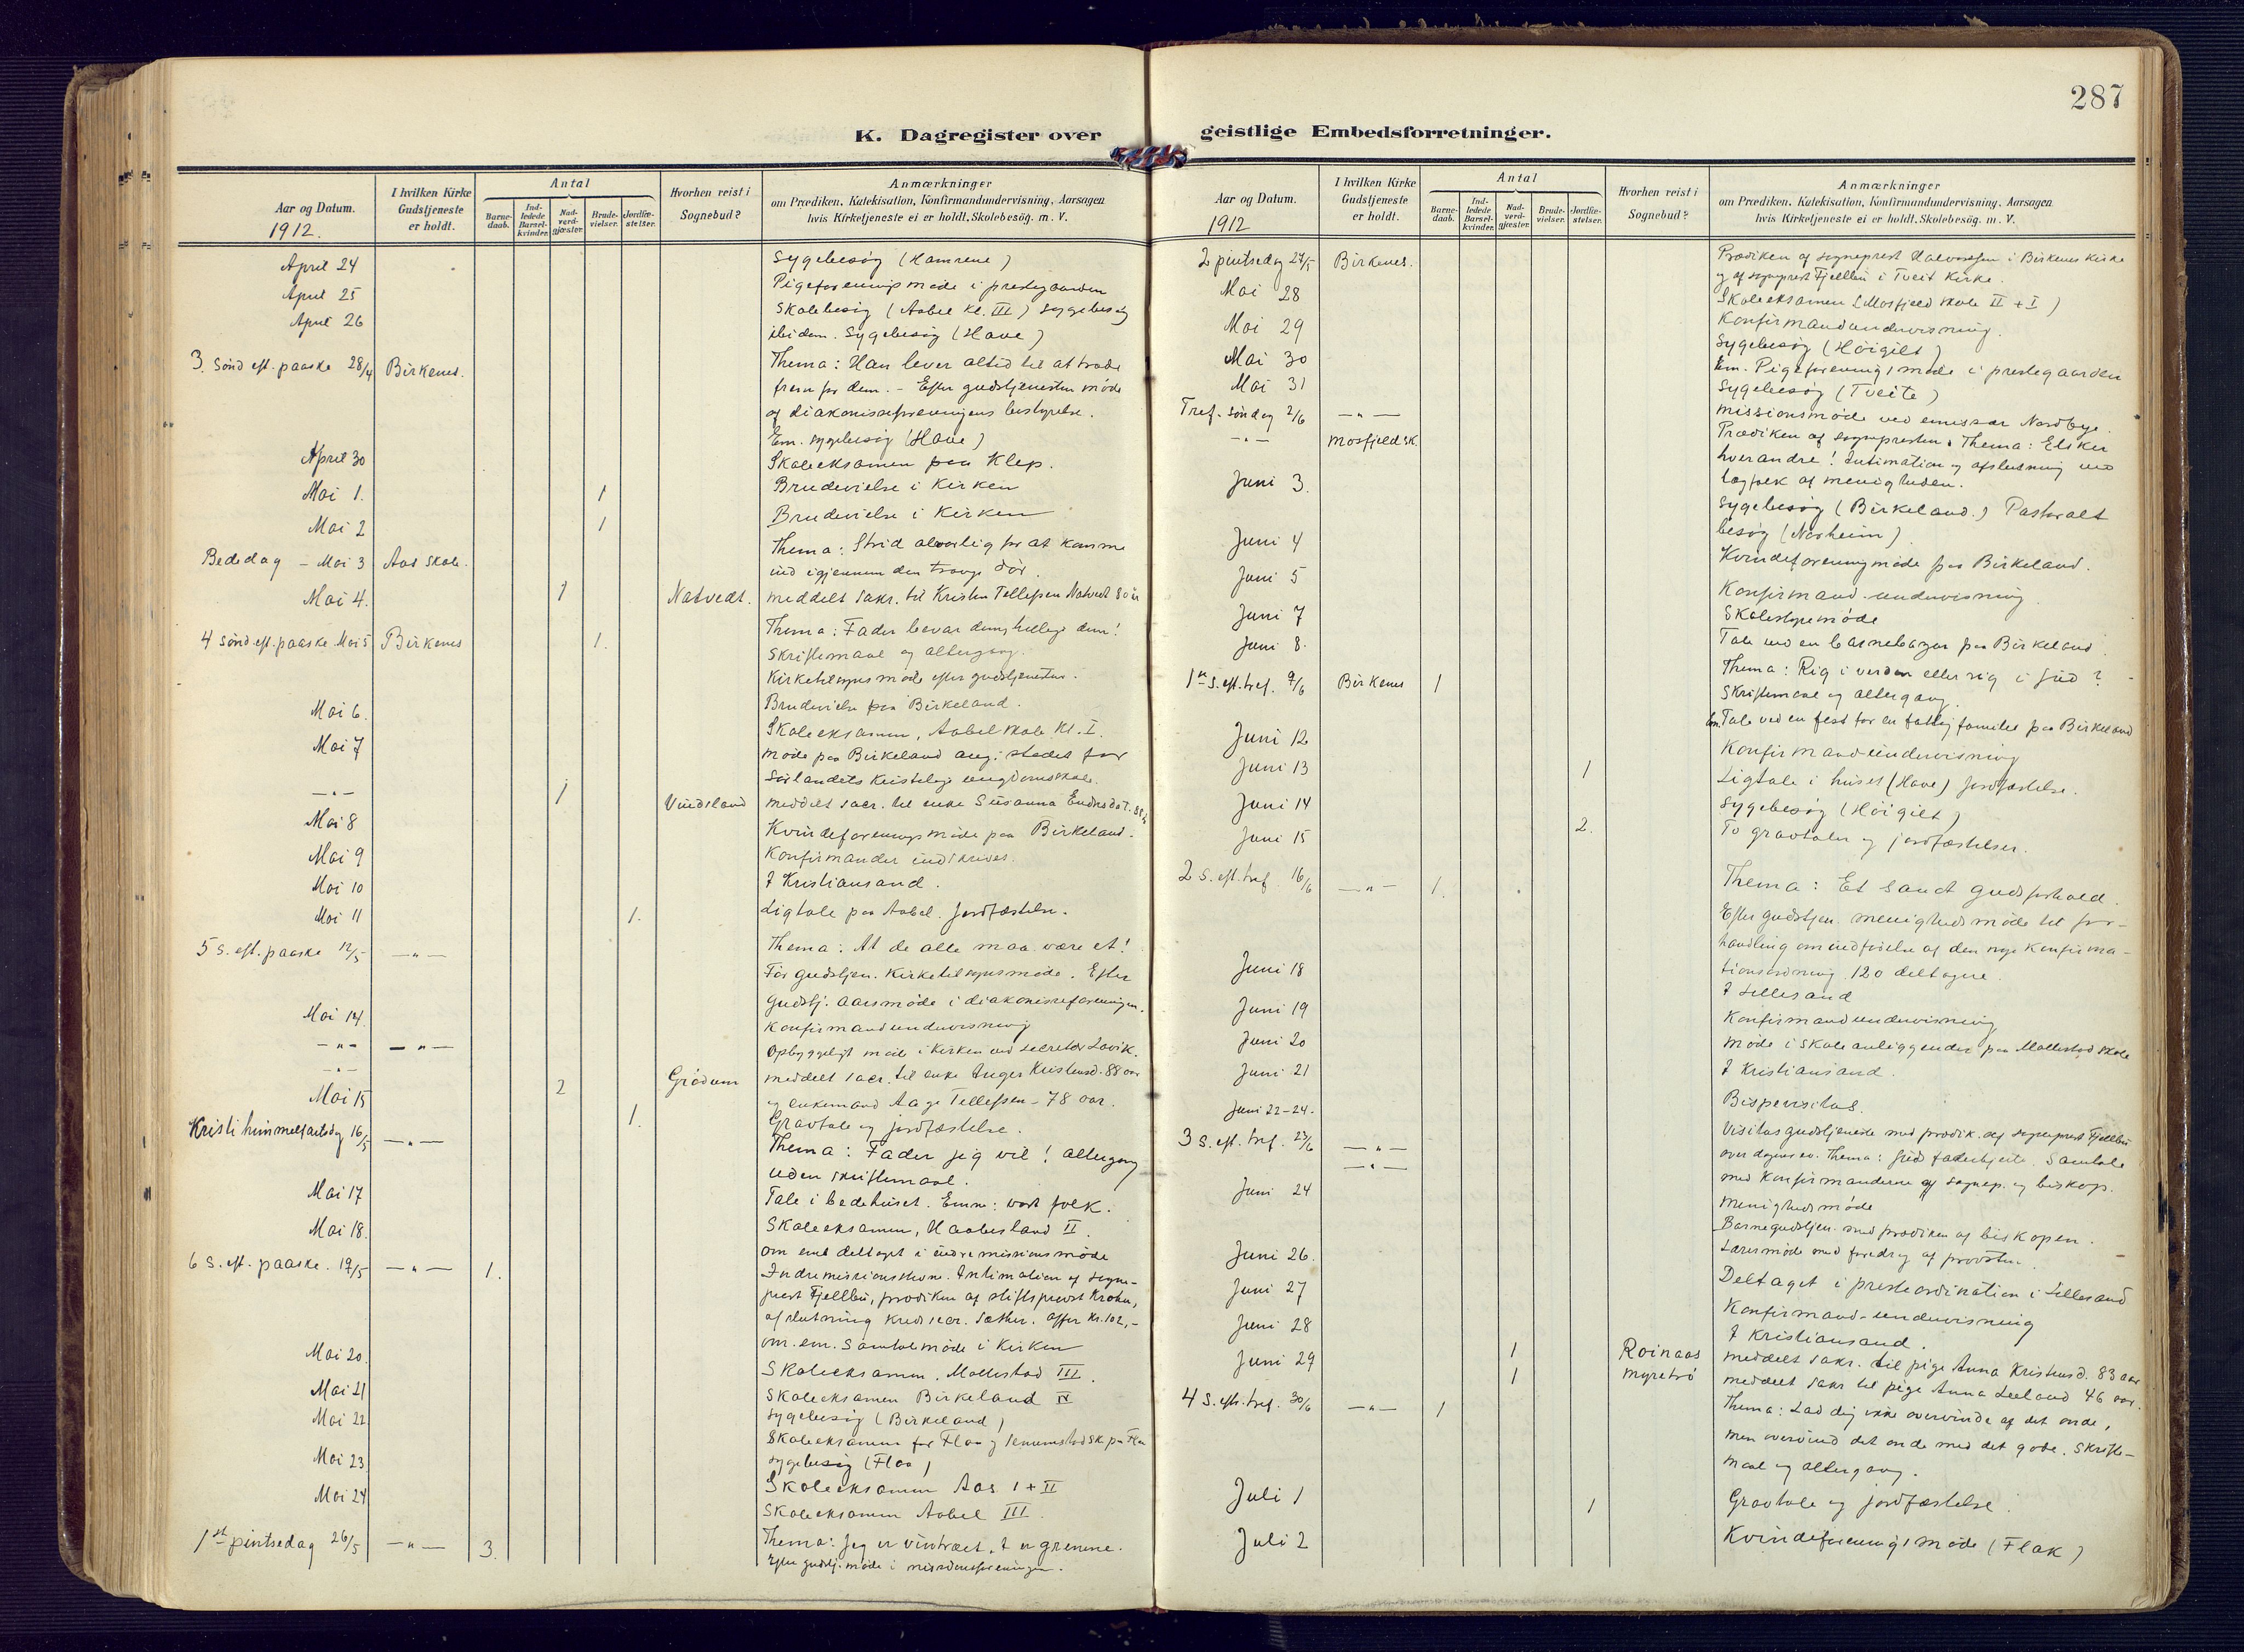 287
K. Dagregister over geistlige Embedsforretninger.
Aar og Datum.
1912.
I hvilken Kirke
Gudstjeneste
er holdt.
Antal
Barne-
daab.
Ind-
ledede
Barsel-
kvinder.
Nad-
verd-
gjæster.
Brude-
vielser.
Jordfæ-
stelser.
Hvorhen reist i
Sognebud?
Anmærkninger
om Prædiken, Katekisation, Konfirmandundervisning, Aarsagen
hvis Kirketjeneste ei er holdt, Skolebesög. m. V.
April 24 Sygebesög (Hamrene)
April 25 Pigeforeningsmøde i prestegaarden
April 26 Skolebesög (Aabel kl. III) Sygebesög
ibidem. Sygebesög (Have)
3. Sönd eft. paaske 28/4 Birkenes. Thema: Han lever altid til at træde
frem for dem. - Efter gudstjenesten møde
af diakonisseforeningens bestyrelse.
Em. sygebesög (Have)
April 30 Skoleeksamen paa Klep.
Mai 1. 1 Brudevielse i Kirken
Mai 2 1 Brudevielse i Kirken
Bededag - Mai 3 Aas Skole. Thema: Strid alvorlig for at komme
ind igjennem den trange dør.
Mai 4. 1 Natvedt. meddelt sakr. til Kristen Tellefsen Natvedt 80 år
4 sönd. eft. paaske Mai 5 Birkenes 1. Thema: Fader bevar dem, hellige dem!
Skriftemaal og altergang.
Kirketilsynsmøde efter gudstjenesten.
Mai 6. Brudevielse paa Birkeland.
Mai 7 Skoleeksamen, Aabel skole Kl. I.
møde paa Birkeland ang. stedet for
Sørlandets Kristelige ungdomsskole.
—„— 1 Vindsland meddelt sacr. til enke Susanna
Mai 8 Kvindeforeningsmøde paa Birkeland.
Mai 9 Konfirmander indskrives.
Mai 10 I Kristiansand.
Mai 11 1. Ligtale paa Aabel. Jordfæstelse.
5 S. eft. paaske 12/5 —„— Thema: At de alle maa være et!
För gudstjen. Kirketilsynsmøde. Efter
gudstj. aarsmøde i diakonisseforeningen.
Mai 14. Konfirmandundervisning
—„— —„— Opbyggeligt møde i Kirken ved sekretær Lavik.
—„— 2 Grödum meddelt sacr. til enke Inger Kristensd. 88 aar
Mai 15 og enkemand Aage Tellefsen - 78 aar.
1. Gravtale og jordfæstelse.
Kristi himmelfartsdag 16/5 —„— Thema: Fader jeg vil! Altergang
uden skriftemaal.
Mai 17 Tale i bedehuset. Emne: vort folk.
Mai 18. Skoleeksamen, Haabesland II.
om em. deltaget i indremissionsmøde
6 S. eft. paaske. 19/5 —„— 1. Indremissionsstevne. Intimation af sogne-
prest Fjellbu, prædiken af stiftsprovst Krohn,
afslutning Kreds secr. Sæther. Offer Kr. 102,-
om. em. Samtalemøde i Kirken
Mai 20. Skoleeksamen. Mollestad III.
Mai 21 Skoleeksamen Birkeland IV
Mai 22 sygebesög (Birkeland)
Skoleeksamen for Flaa og Senumstad sk. paa Flaa
Mai 23 sygebesög (Flaa)
Skoleeksamen Aas I + II
Mai 24 Skoleeksamen Aabel III.
1st pintsedag 26/5 —„— 3. Thema: Jeg er vintræet, I er grenene.
Efter gudstj. møde i missionsforeningen.
Aar og Datum.
1912
I hvilken Kirke
Gudstjeneste
er holdt.
Antal
Barne-
daab.
Ind-
ledede
Barsel-
kvinder.
Nad-
verd-
gjæster.
Brude-
vielser.
Jordfæ-
stelser.
Hvorhen reist i
Sognebud?
Anmærkninger
om Prædiken, Katekisation, Konfirmandundervisning, Aarsagen
hvis Kirketjeneste ei er holdt. Skolebesög. m. V.
2 pintsedag 27/5 Birkenes. Prædiken af sogneprest Halvorsen i Birkenes Kirke
og af sogneprest Fjellbu i Tveit Kirke.
Mai 28 Skoleeksamen (Mosfjeld skole II + I)
Mai 29 Konfirmandundervisning.
Mai 30 Sygebesög (Höigilt)
Em. Pigeforeningsmøde i prestegaarden
Mai 31 Sygebesög (Tveite)
Tref. söndag 2/6 —„— missionsmøde ved emissær Nordbye.
—„— Mosfjeld sk. Prædiken af sognepresten. Thema: Elsker
hverandre! Intimation og afslutning ved
lægfolk af menigheden.
Juni 3. Sygebesög (Birkeland.) Pastoralt
besög (Norheim)
Juni 4 Kvindeforeningsmøde paa Birkeland.
Juni 5 Konfirmand-undervisning
Juni 7 Skolestyremøde
Juni 8. Tale ved en barnebazar paa Birkeland.
1ste S. eft. tref. 9/6 Birkenes 1 Thema: Rig i verden eller rig i Gud?
Skriftemaal og altergang.
Em. Tale ved en fest for en fattig familie paa Birkeland
Juni 12 Konfirmandundervisning
Juni 13 1 Ligtale i huset (Have) Jordfæstelse.
Juni 14 Sygebesög (Höigilt)
Juni 15 2. To gravtaler og jordfæstelser.
2 S. eft. tref. 16/6 —„— 1. Thema: Et sandt gudsforhold.
Efter gudstjen. menighedsmøde til for-
handling om indførelse af den nye Konfirma-
tionsordning. 120 deltagere.
Juni 18 I Lillesand
Juni 19 Konfirmandundervisning
Juni 20 Møde i skoleanliggender paa Mollestad skole
Juni 21 I Kristiansand.
Juni 22-24. Bispevisitas.
3 S. eft. tref. 23/6 —„— Visitasgudstjeneste med prædik. af sogneprest Fjellbu
over dagens ev. Thema: Guds faderhjerte. Samtale
—„— med Konfirmanderne af sognep. og biskop.
Menighedsmøde
Juni 24 Barnegudstjen. med prædiken af biskopen.
Læresmøde med foredrag af provsten.
Juni 26. Deltaget i presteordination i Lillesand
Juni 27 Konfirmand-undervisning
Juni 28 I Kristiansand.
Juni 29 1 Roinaas meddelt sakr. til pige Anna Kristensd. 83 aar
1 Myretrö meddelt sakr til pige Anna Leeland 46 aar.
4 S. eft. tref. 30/6 —„— 1 Thema: Lad dig ikke overvinde af det onde,
men overvind det onde med det gode. Skrifte-
maal og altergang.
Juli 1 1 Gravtale og jordfæstelse.
Juli 2 Kvindeforeningsmøde (Flak)